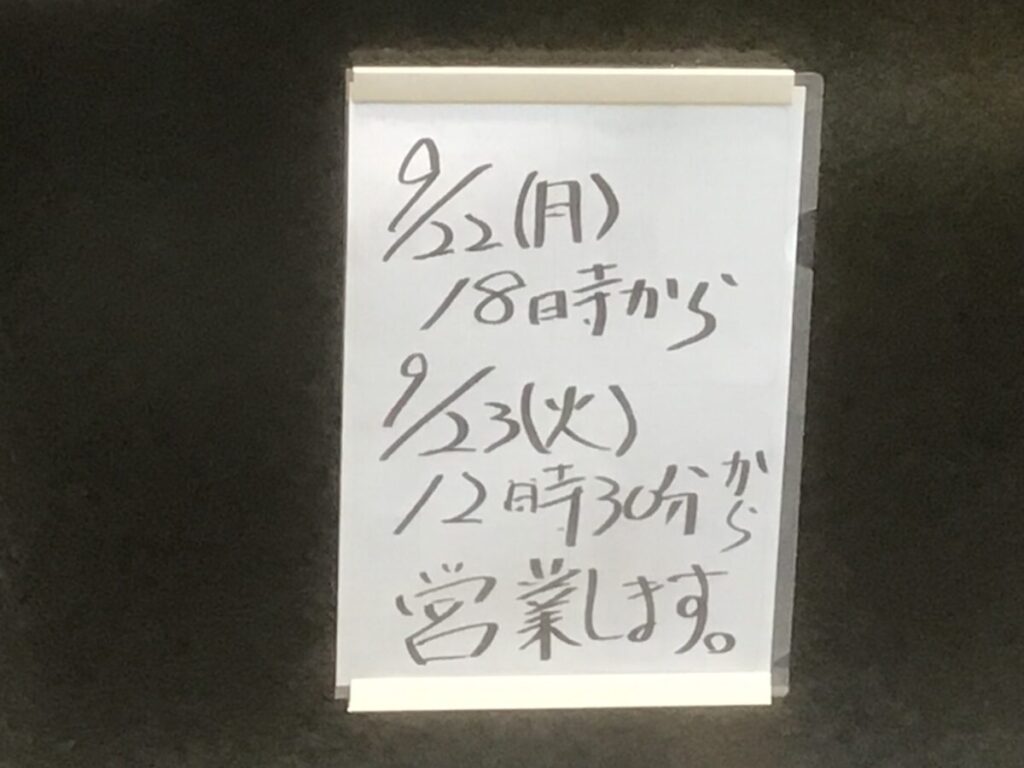 9/22(月)
18時から
9/23(火)
12時30分から
営業します。